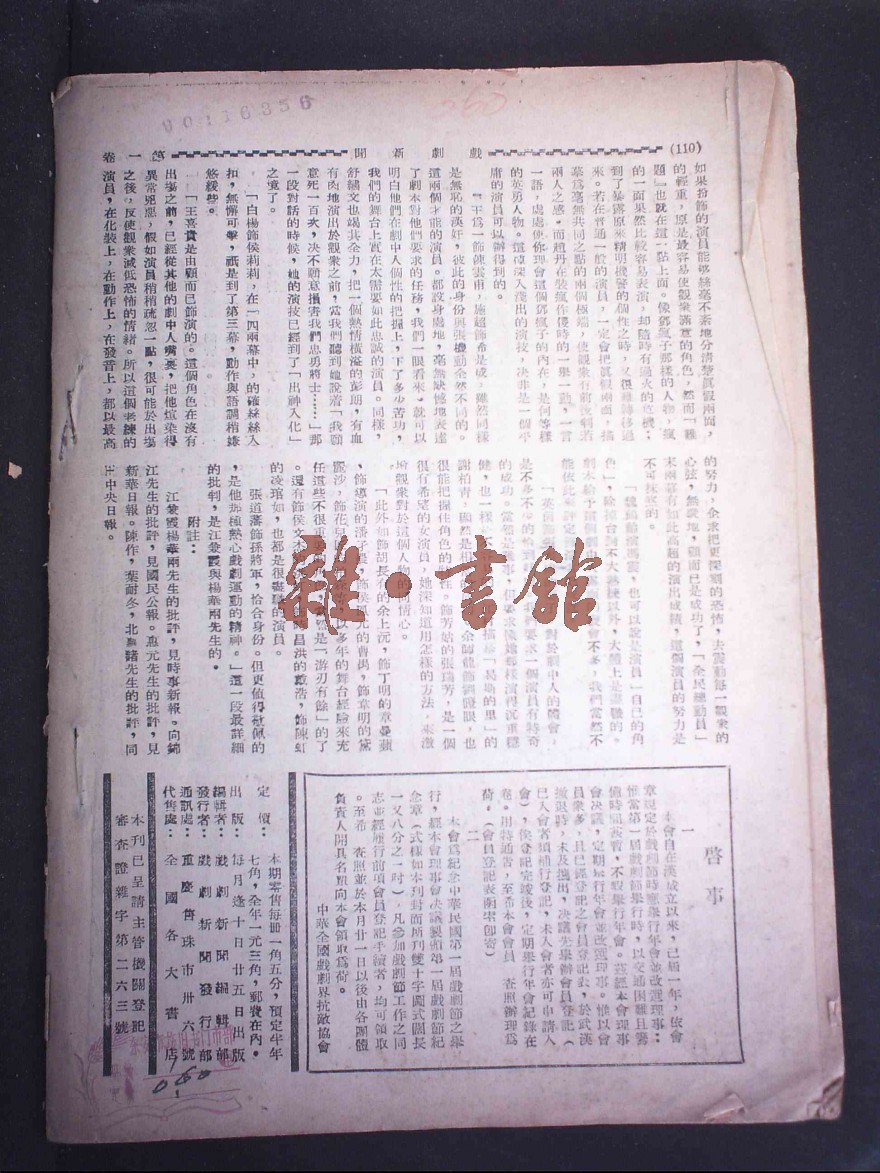 00116356
260
(110)
戲劇新聞
第一卷
如果扮飾的演員能够絲毫不紊地分清楚眞假兩面,
的輕重,原是最容易使觀衆滿意的角色,然而「難
題」也就在這一點上面。像鄧瘋子那樣的人物,瘋
的一面果然比較容易表演,却隨時有過火的危機;
到了暴露原來精明機警的個性之時,又很難轉移過
來。若在普通一般的演員,一定會把眞假兩面,描
摹爲毫無共同之點的兩個極端,使觀衆有前後判若
兩人之感。而趙丹在裝瘋作傻時的一舉一動,一言
一語,處處使你理會這個鄧瘋子的內在,是何等樣
的英勇人物。這種深入淺出的演技,決非是一個平
庸的演員可以辦得到的。
「王爲一飾陳雲甫,施超飾希是成,雖然同樣
是無恥的漢奸,彼此的身份與張機動全然不同的。
這兩個才能的演員。都設身處地,毫無缺憾地表達
了劇本對他們要求的任務,我們一眼看來,就可以
明白他們在劇中人個性的把握上,下了多少苦功,
我們的舞台上實在太需要如此忠誠的演員。同樣,
舒繡文也竭其全力,把一個熱情橫溢的彭朗,有血
有肉地演出於觀衆之前,當我們聽到她說着「我願
意死一百次,决不願意損害我們忠勇將士……」那
一段對話的時候,她的演技已經到了「出神入化」
之境了。
「白楊飾侯莉莉,在一四兩幕中,的確絲絲入
扣,無懈可擊,祇是到了第三幕,動作與語調稍嫌
悠緩些。
「王喜貴是由顧而已飾演的。這個角色在沒有
出塲之前,已經從其他的劇中人嘴裏,把他渲染得
異常兇惡,假如演員稍稍疏忽一點,很可能於出塲
之後,反使觀衆減低恐怖的情緒。所以這個老練的
演員,在化裝上,在動作上,在發音上,都以最高
的努力,企求把更深刻的恐怖,去震動每一觀衆的
心弦,無疑地,顧而已是成功了,「全民總動員」
末兩幕有如此高超的演出成績,這個演員的努力是
不可抹殺的。
也可以說是演員」自己的角
色」,除掉台詞不大熟練以外,大體上是穩穩的。
我們當然不
能依此來評定
對於劇中人的體會,
要求一個演員有時奇
的成功,當然
樣演得沉重穩
健,也一樣
描摹「易斯的里」的
謝柏青
余師龍飾劉證眼,也
很能把握住角色的個性。飾芳姑的張瑞芳,是一個
很有希望的女演員,她深知道用怎樣的方法,來激
增觀衆對於這個人物的同情心。
「此外如飾胡長有的余上沅,飾丁明的章曼蘋
,飾導演的潘孑農,飾侯鳳元的曹禺,飾章明的黛
麗沙,飾花兒
以多年的舞台經驗來充
任這些不很重要
然是「游刃有餘」的了
。還有飾侯文本
昌洪的戴浩,飾陳虹
的凌琯如,也都是很
的演員。
張道藩飾孫將軍,恰合身份。但更值得敬佩的
,是他那種熱心戲劇運動的精神。」這一段最詳細
的批判,是江兼霞與楊華兩先生的。
附註:
江兼霞楊華兩先生的批評,見時事新報。向錦
江先生的批評,見國民公報。惠元先生的批評,見
新華日報。陳作,葉耐冬,北鷗諸先生的批評,同
王中央日報。
雜·書舘
啓事
一
本會自在漢成立以來,已屆一年,依會
章規定於戲劇節時應舉行年會並改選理事;
惟當第一屆戲劇節舉行時,以交通困難且籌
備時間匆暫,不暇舉行年會。茲經本會理事
會決議,定期舉行年會並改選理事。惟以會
員衆多,且已經登記之會員表册,於武漢
撤退時,未及携出,决議先舉辦會員登記(
已入會者須補行登記,未入會者亦可申請入
會),俟登記完竣後,定期舉行年會記錄在
卷。用特通告,至希本會會員 查照辦理爲
荷。(會員登記表函索卽寄)
二
本會爲紀念中華民國第一屆戲劇節之舉
行,經本會理事會決議製頒第一屆戲劇節紀
念章(式樣如本刊封面所刋雙十字圖式圓長
一又八分之一吋),凡參加戲劇節工作之同
志並經履行前項會員登記手續者,均可領取
。至希 查照並於本月廿一日以後由各團體
負責人開具名單向本會領取爲荷。
中華全國戲劇界抗敵協會
定價:本期零售每册一角五分,預定半年
七角,全年一元三角,郵費在內。
出版:每月逢十日廿五日出版
編輯者:戲劇新聞編輯部
發行者:戲劇新聞發行部
通訊處:重慶售珠市卅六號
代售處:全國各大書店
本刊已呈請主管機關登記
審查證雜字第二六三號
060